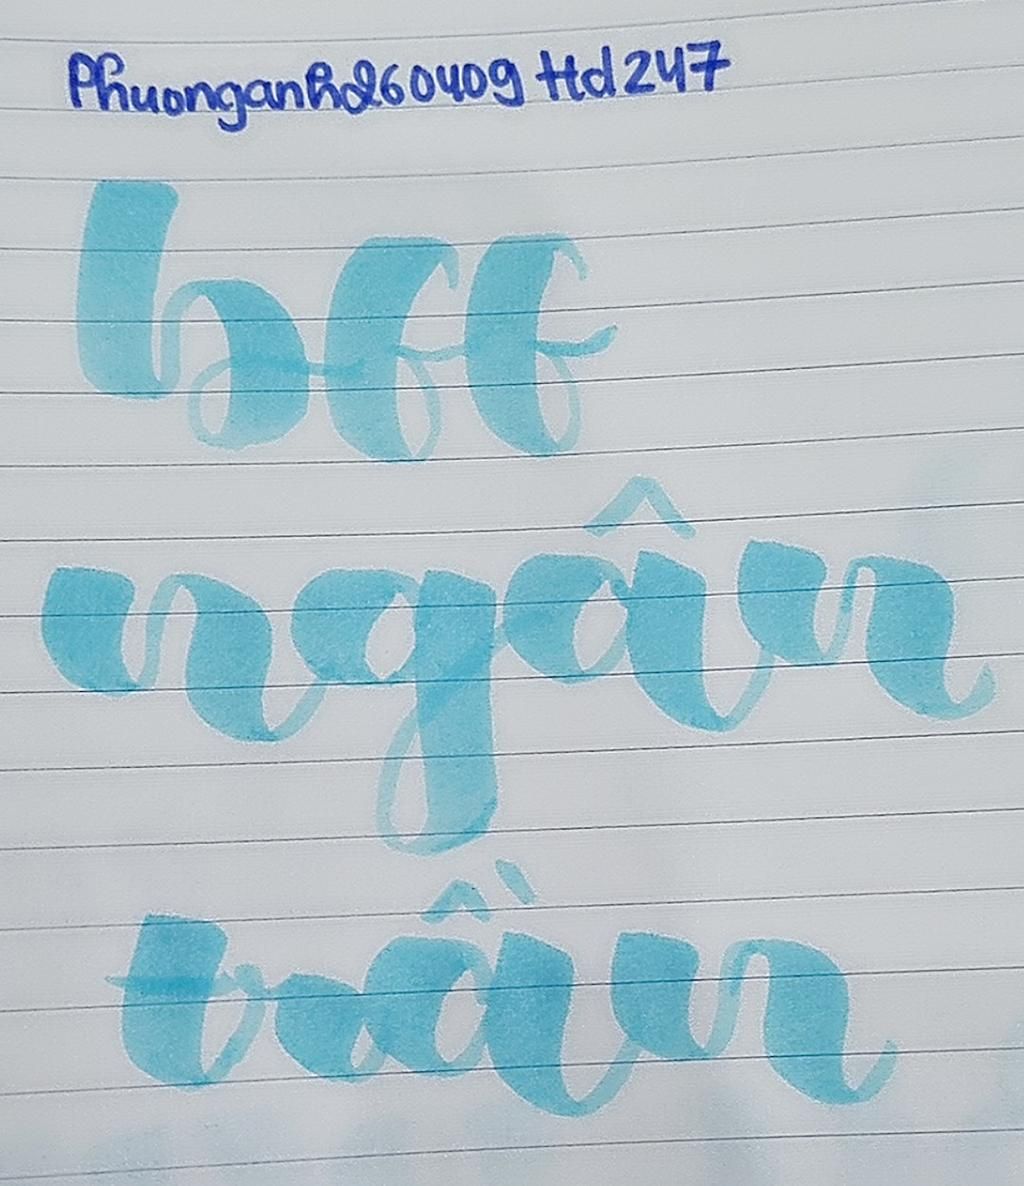 Phuonganhd260409 Hd247
bff
ngân
trần